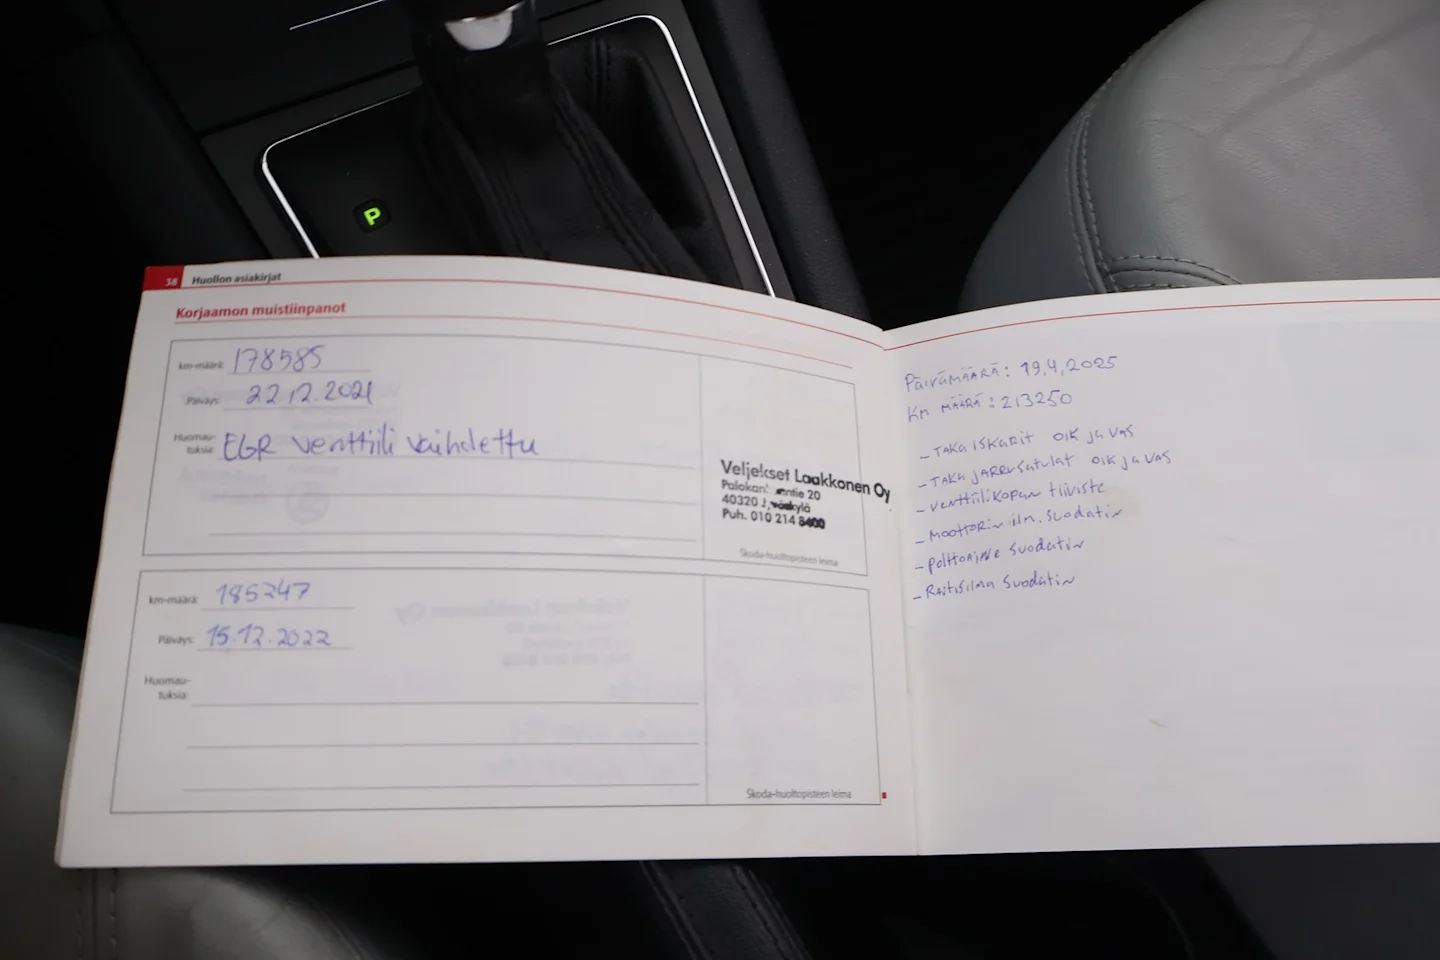 P
38 Huollon asiakirjat
Korjaamon muistiinpanot
km-määrä: 178585
Päiväys: 22.12.2021
Huomau-
tuksia: EGR venttiili vaihdettu
Veljekset Laakkonen Oy
Palokan 20
40320
Puh. 010 214 8400
Skoda-huoltopisteen leima
km-määrä: 185247
Päiväys: 15.12.2022
Huomau-
tuksia:
Skoda-huoltopisteen leima
PÄIVÄMÄÄRÄ: 19,4,2025
Km MÄÄRÄ: 213250
- TAKA ISKARIT OIK JA VAS
- TAKA JARRUSATULAT OIK JA VAS
- VENTTIILIKOPAN TIIVISTE
- MOOTTORIN ilm. SUODATIN
- POLTTOAINE SUODATIN
- RAITISILMA SUODATIN